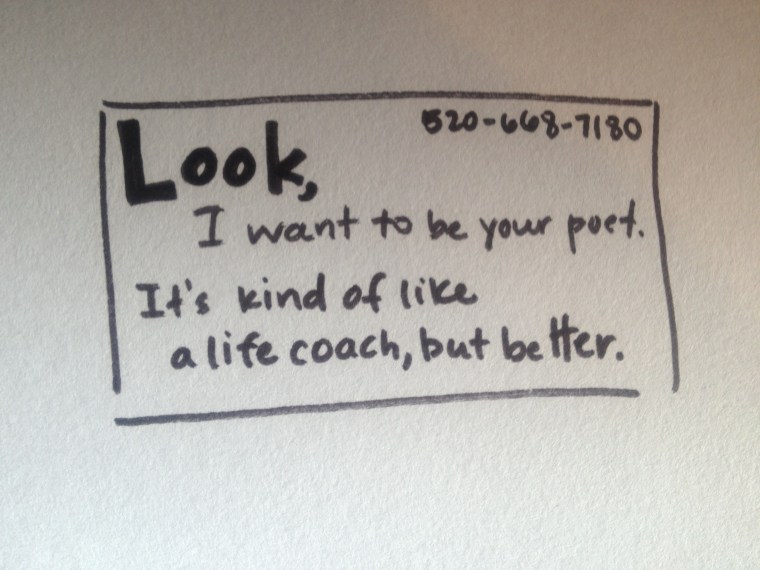 520-668-7180
Look,
I want to be your poet.
It's kind of like
a life coach, but better.